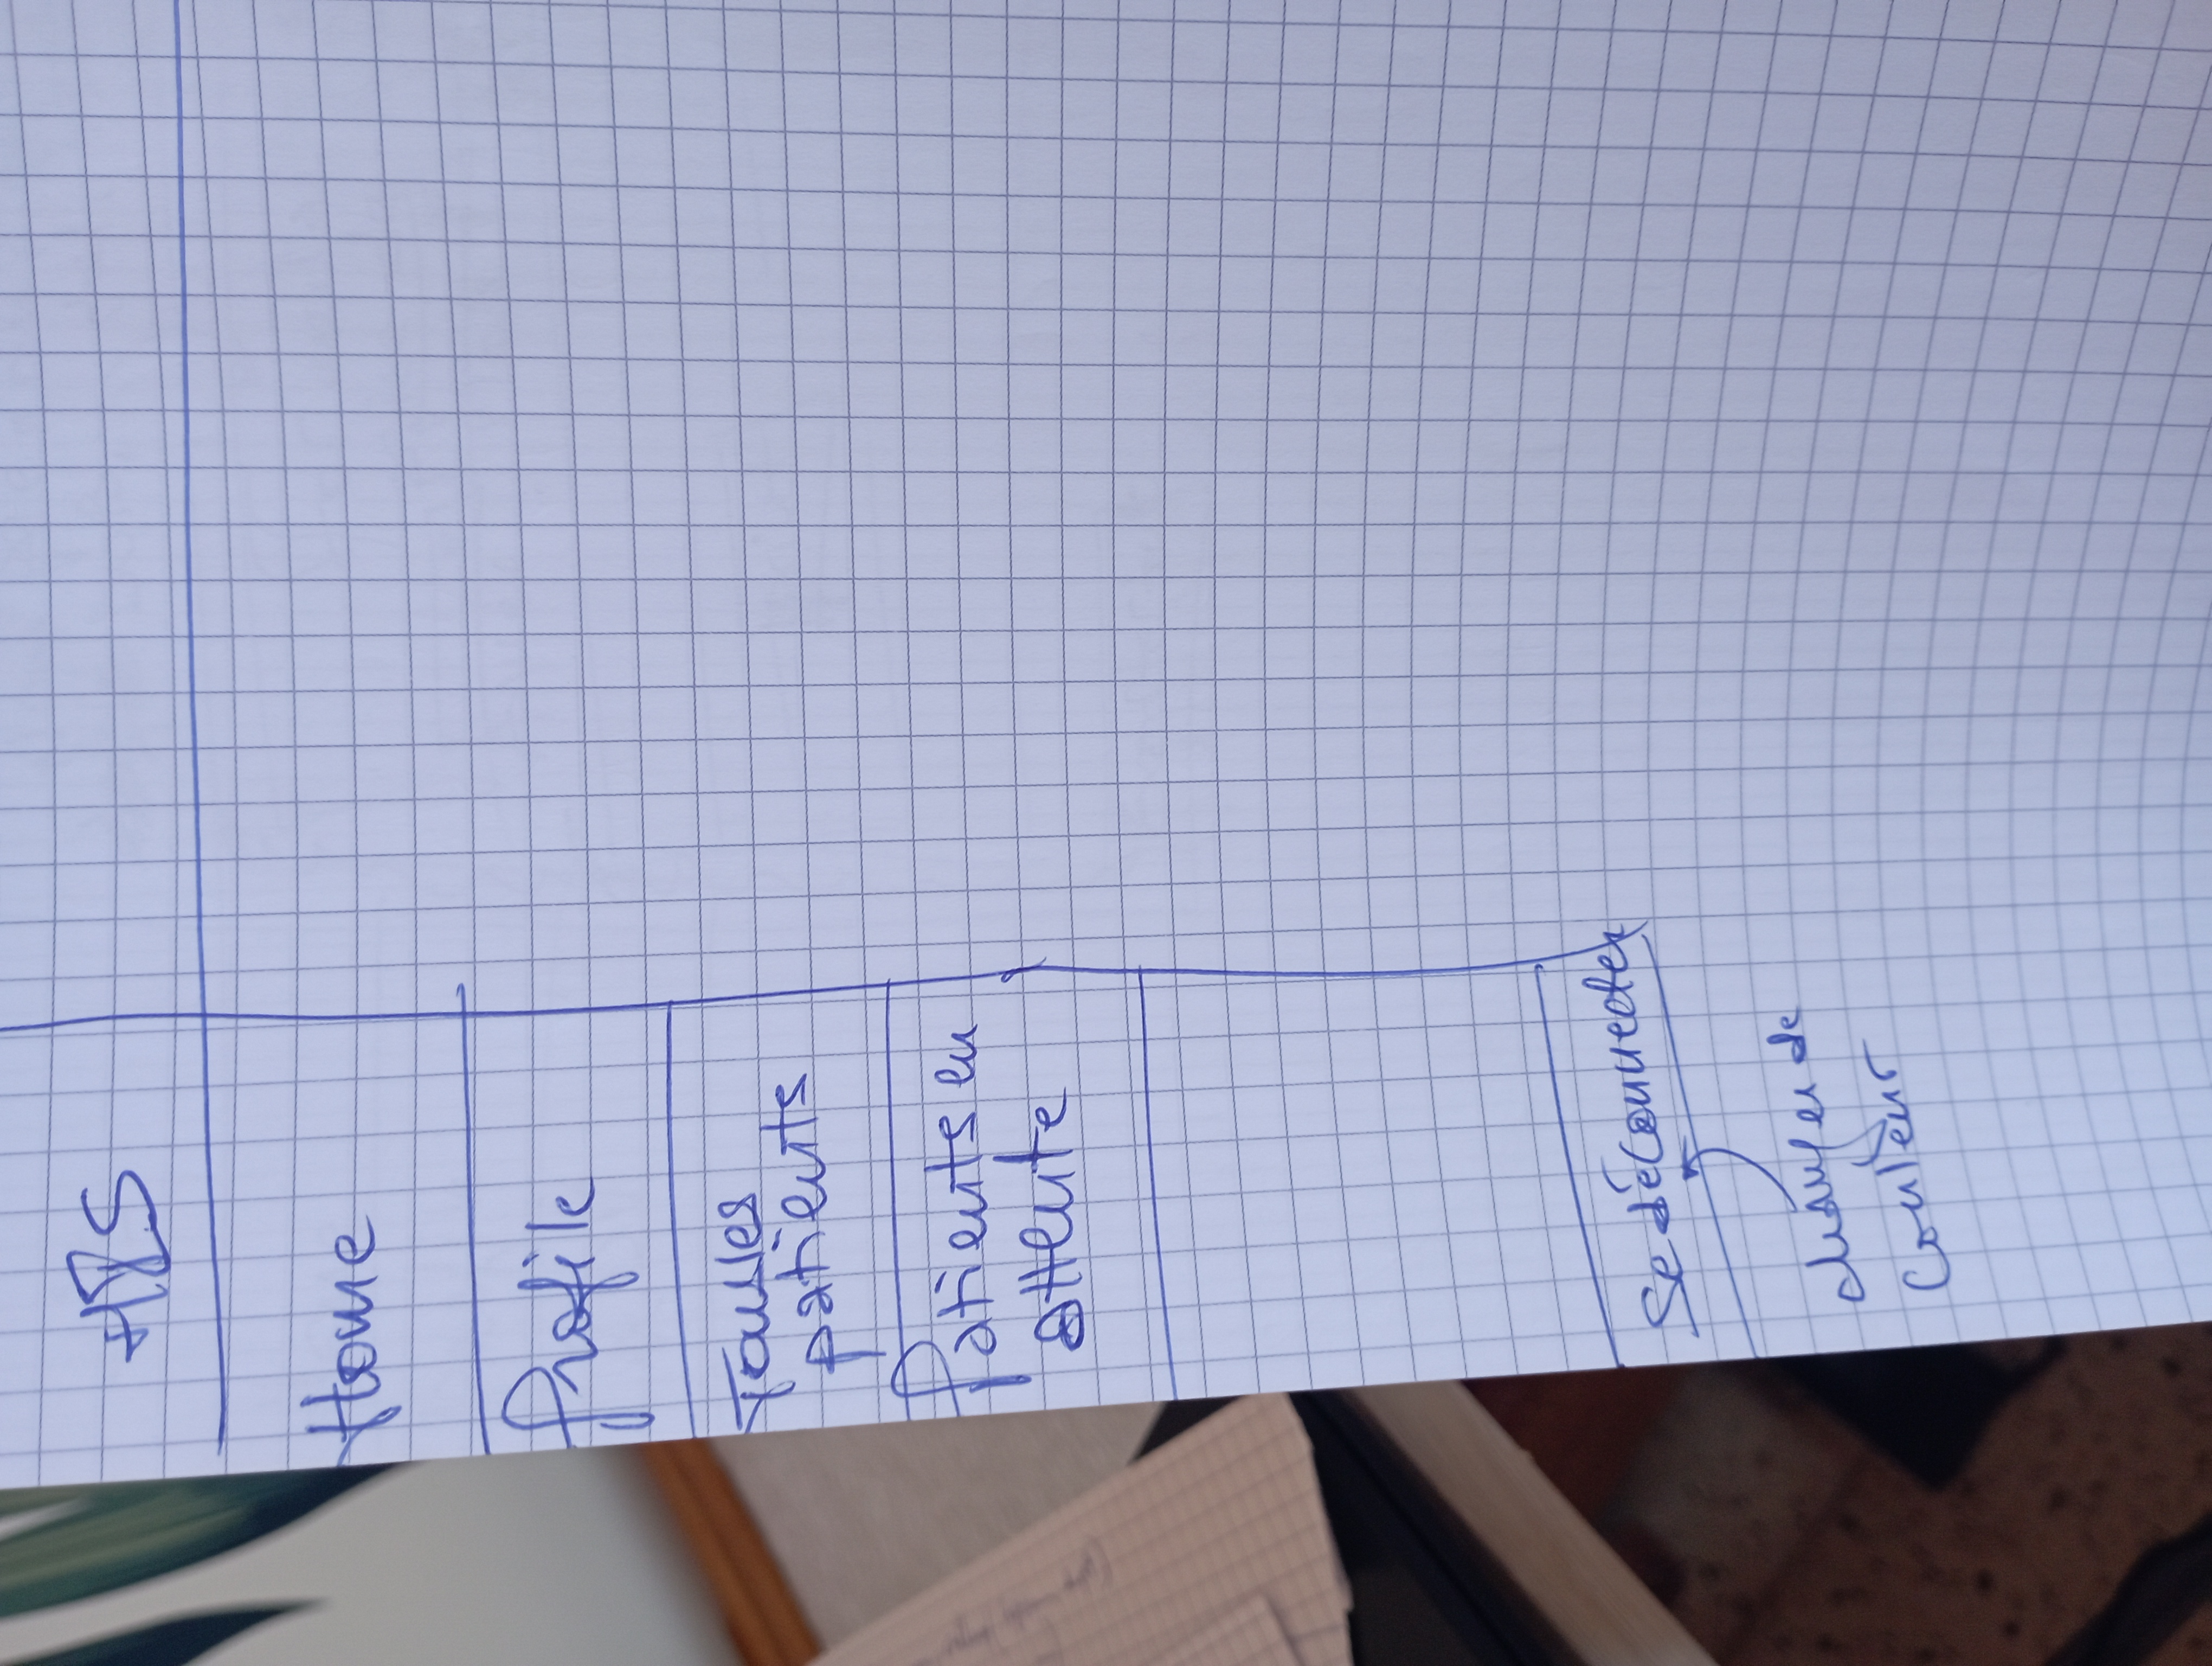 Home
Profile
Tous les
patients
Patients en
attente
Se déconnecter
changer de
couleur